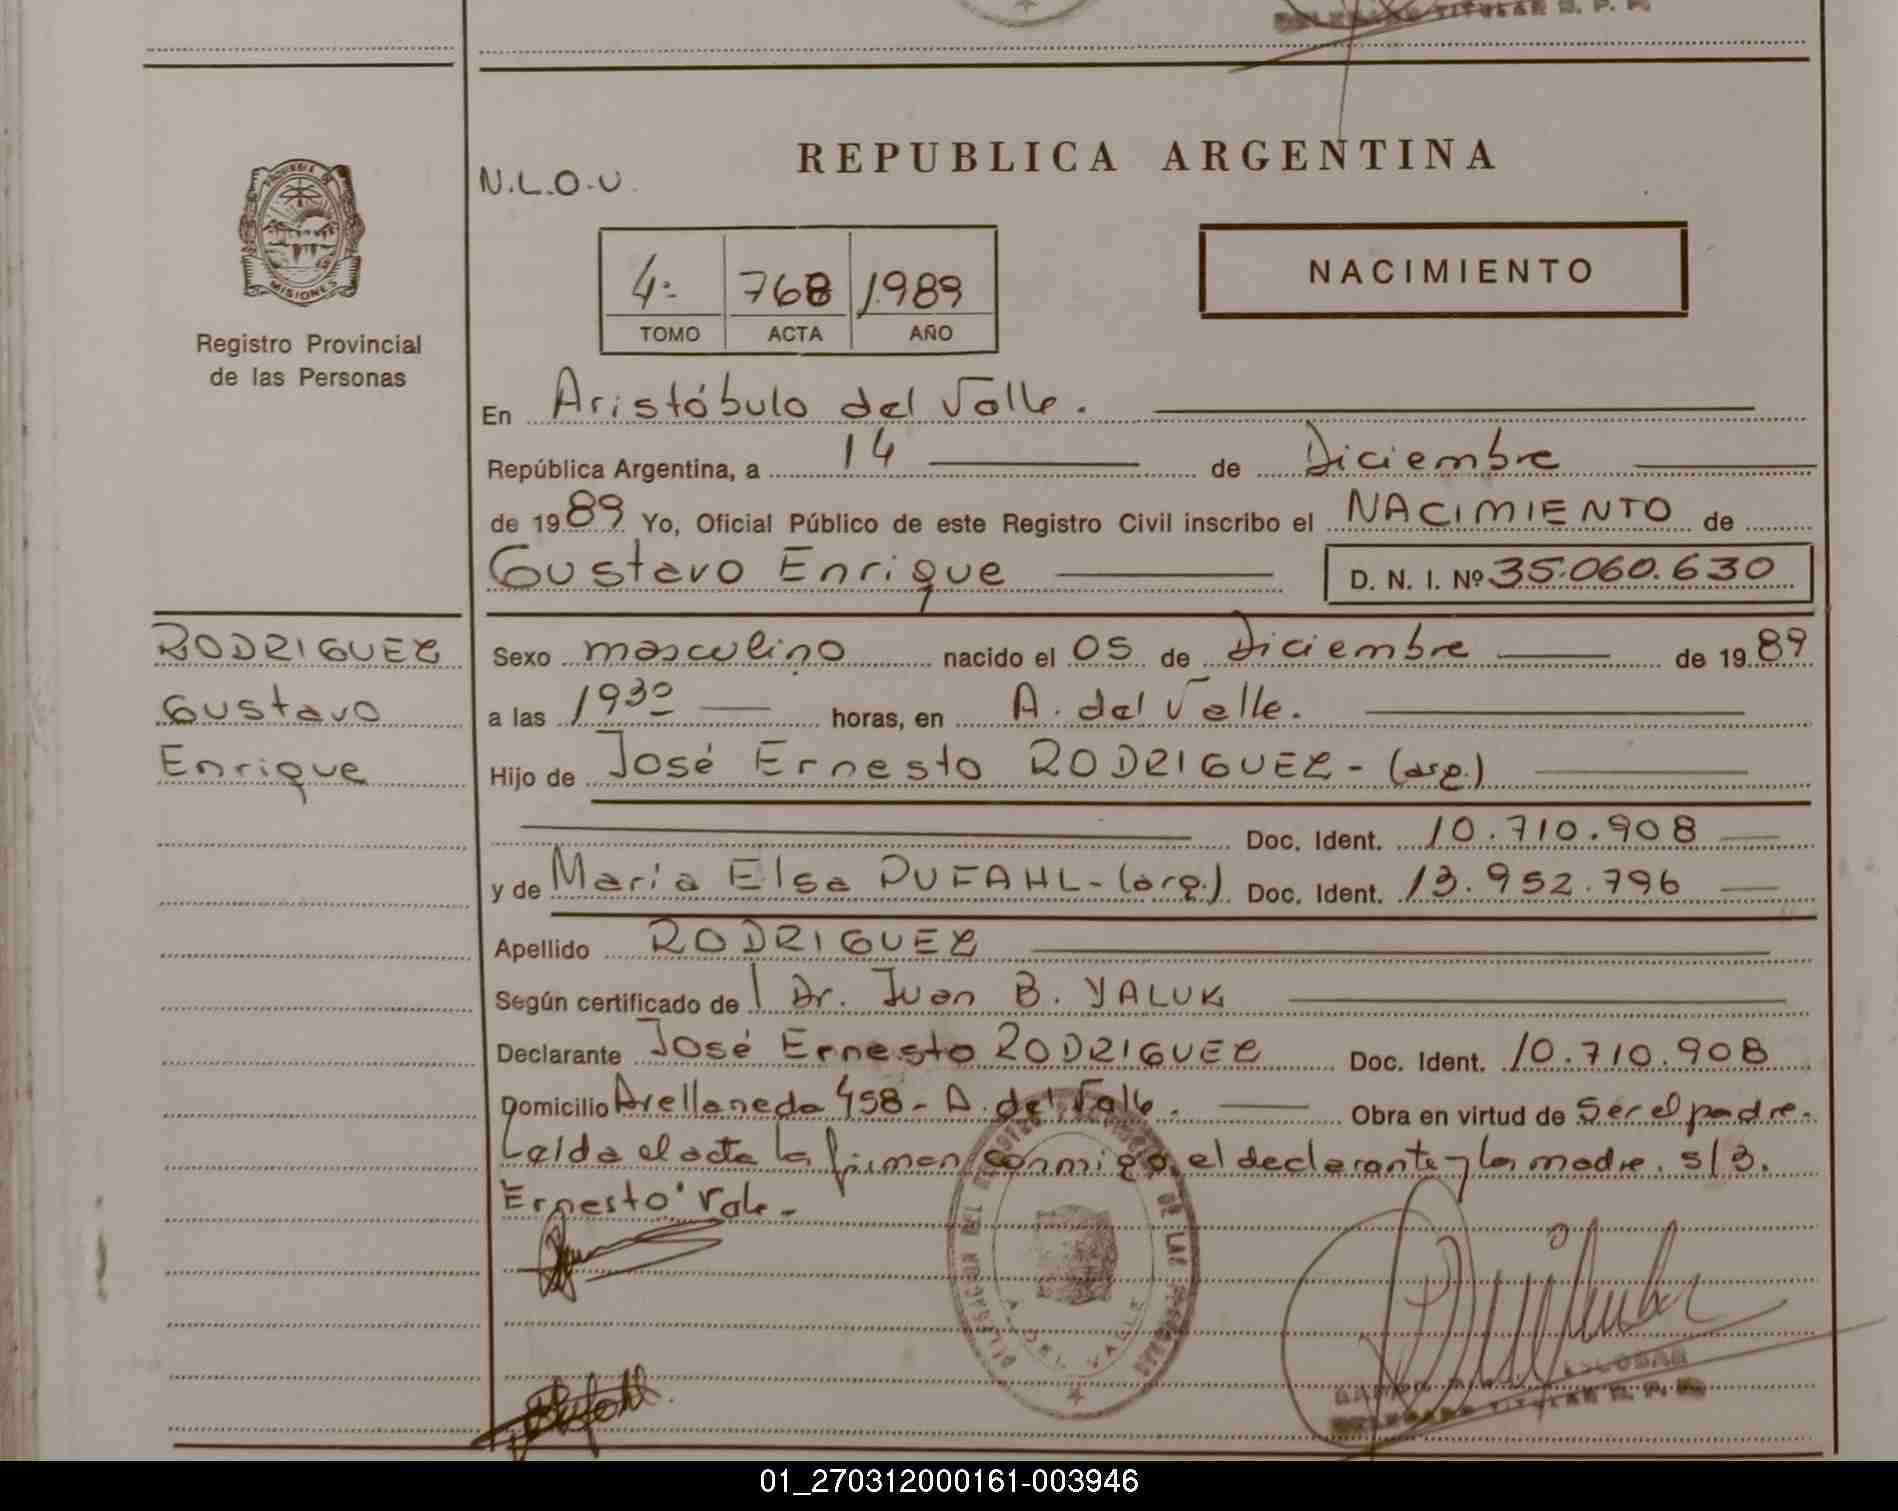 TITULAR R. P. P.
REPUBLICA ARGENTINA
N.L.O.U.
NACIMIENTO
4º 768 1989
TOMO ACTA AÑO
MISIONES
Registro Provincial
de las Personas
En Aristóbulo del Valle.
República Argentina, a 14 de Diciembre
de 1989 Yo, Oficial Público de este Registro Civil inscribo el NACIMIENTO de
Gustavo Enrique D. N. I. Nº 35.060.630
RODRIGUEZ
Gustavo
Enrique
Sexo masculino nacido el 05 de Diciembre de 1989
a las 1930 horas, en A. del Valle.
Hijo de José Ernesto RODRIGUEZ - (arg.)
Doc. Ident. 10.710.908
y de María Elsa DUFAHL - (arg.) Doc. Ident. 13.952.796
Apellido RODRIGUEZ
Según certificado de Dr. Juan B. YALUK
Declarante José Ernesto RODRIGUEZ Doc. Ident. 10.710.908
Domicilio Avellaneda 458 - A. del Valle. Obra en virtud de Ser el padre.
Leída el acta la firman conmigo, el declarante y la madre. s/3.
Ernesto" Vale -
DELEGACION DEL REGISTRO DE LAS PERSONAS
A. DEL VALLE
ESCOBAR
DELEGADO TITULAR R. P. P.
01_270312000161-003946